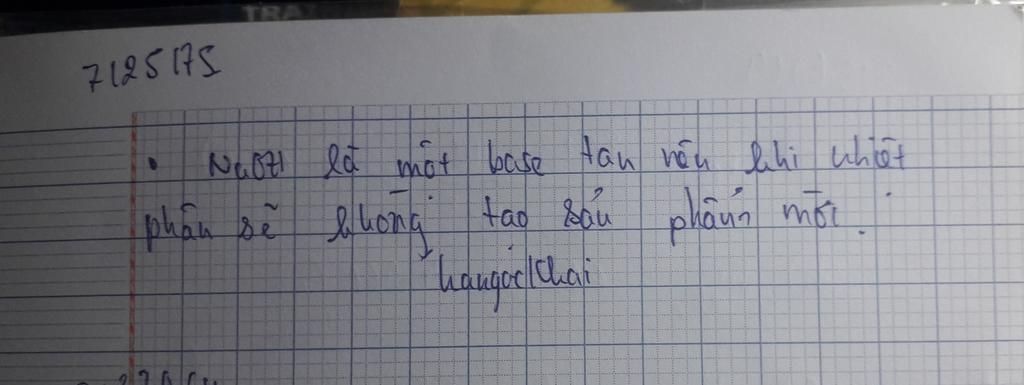 7125175
• NaOH là một base tan nên khi nhiệt
phân sẽ không tạo sản phẩm mới.
hangoclkhai